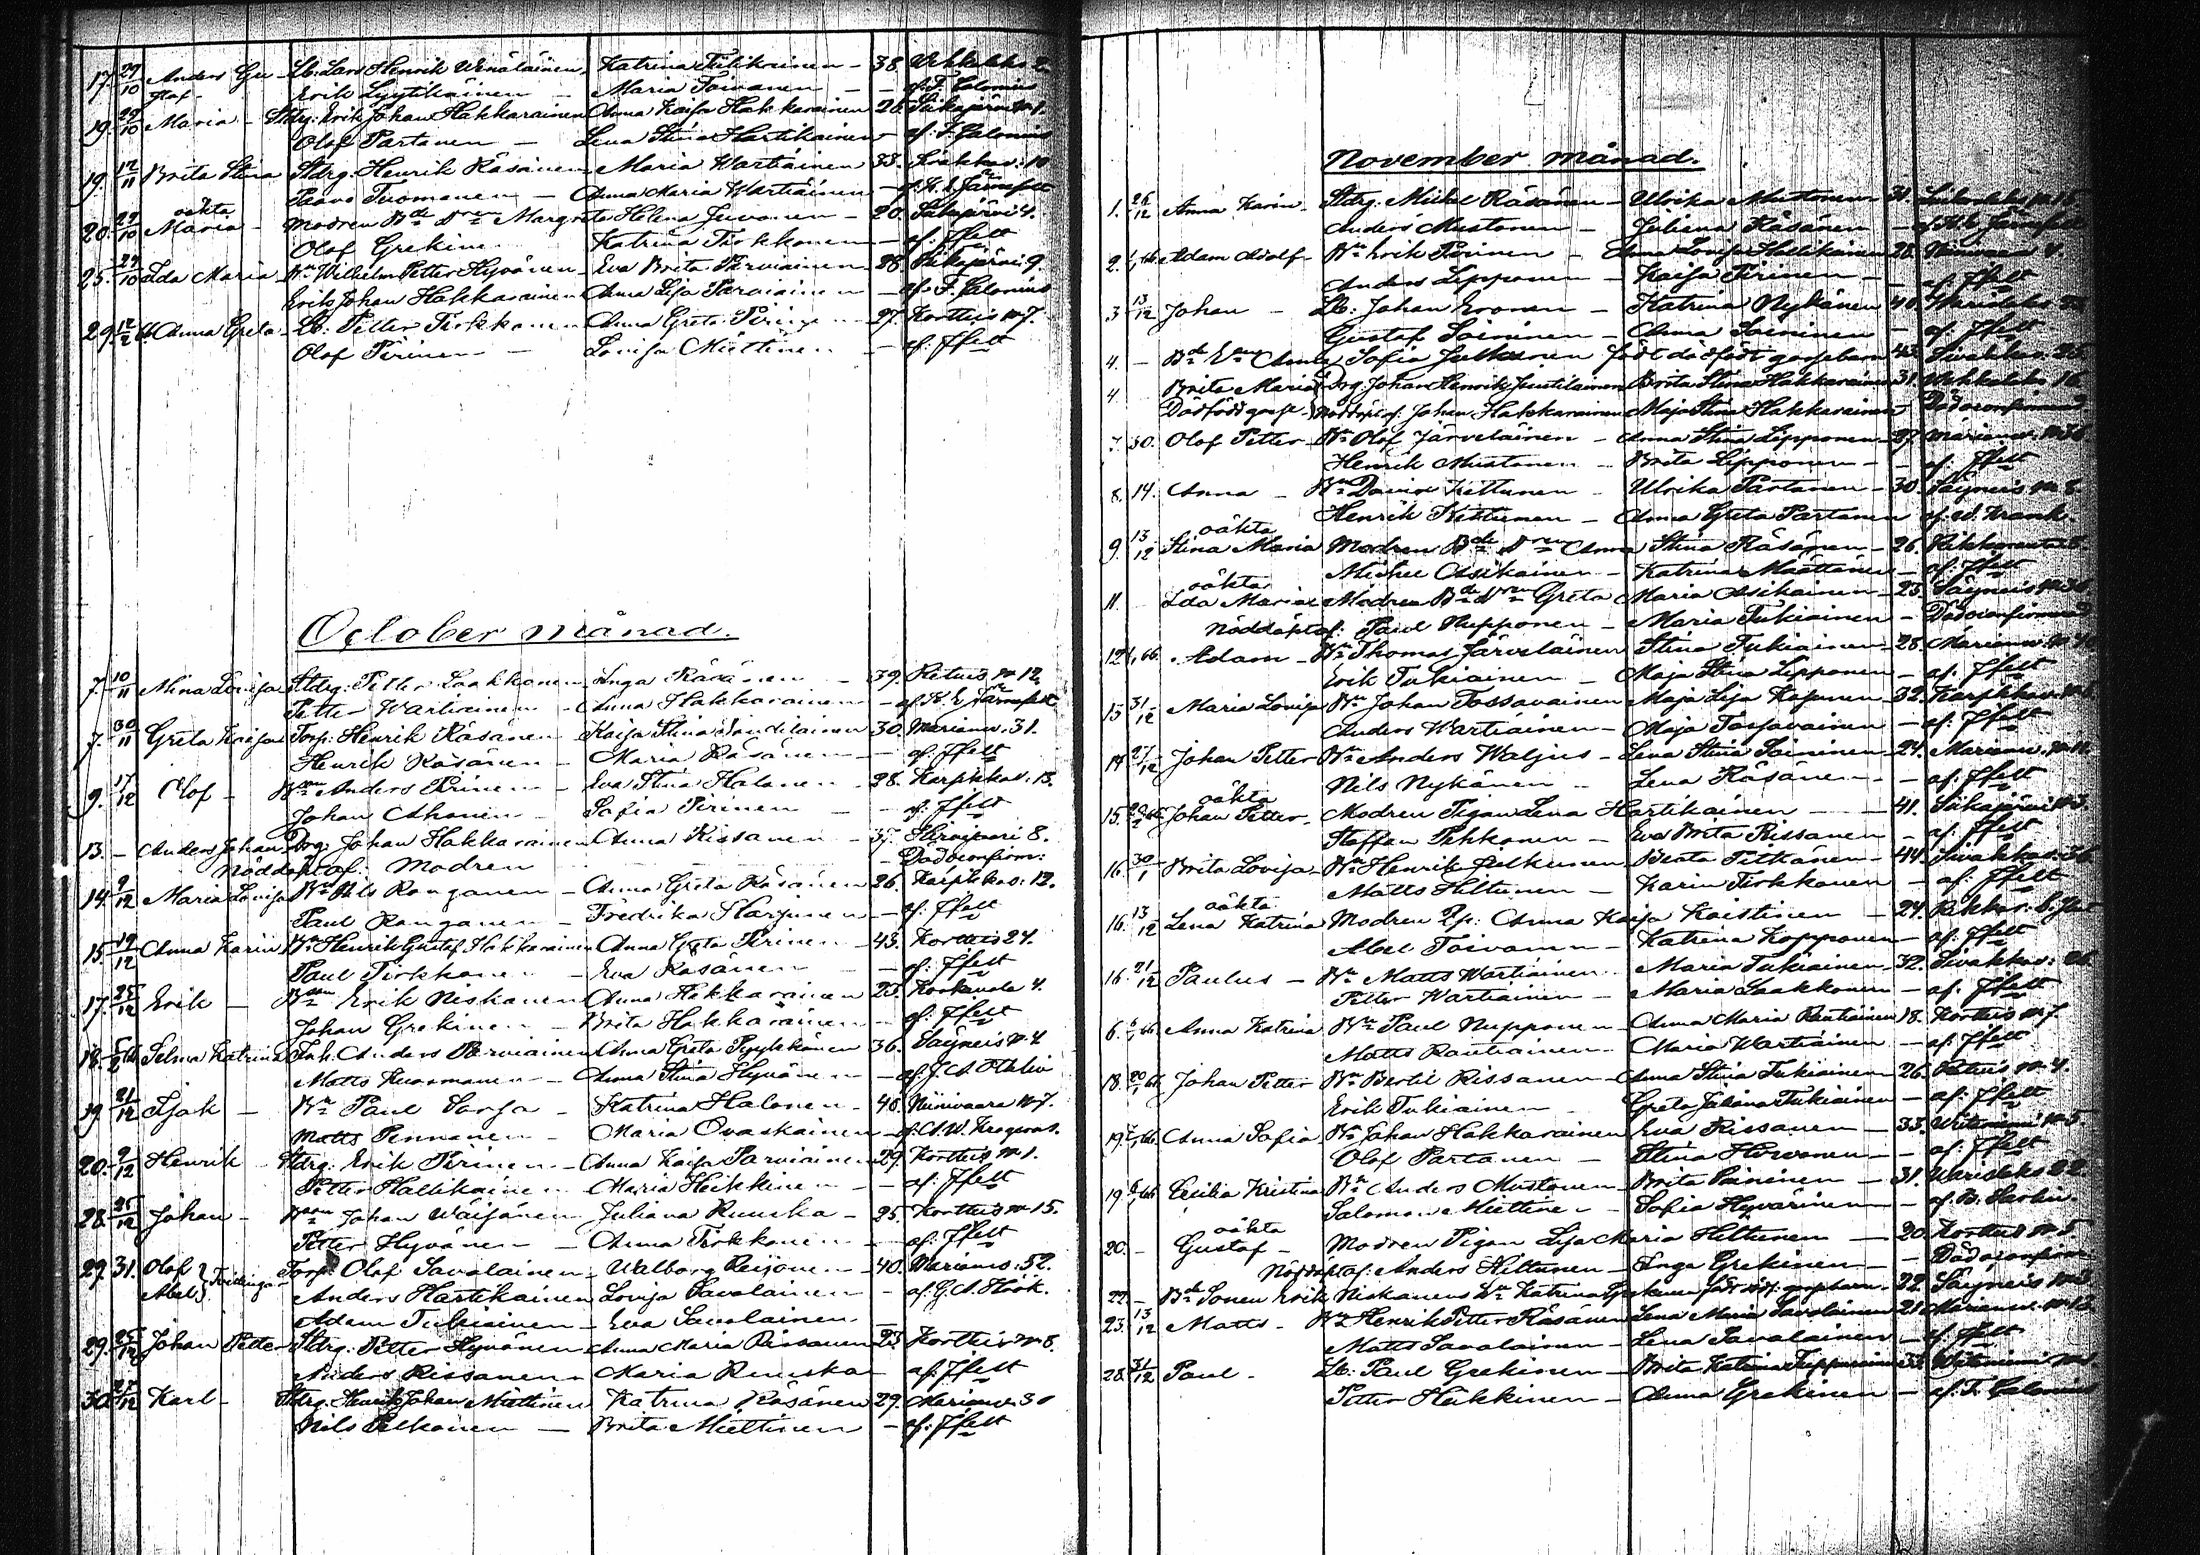 17. 29/10 Anders Gu- Lb: Lars Henrik Wenäläinen, Katrina Tukiainen - 38. Wehkalaks 2
staf - Erik Lyytikäinen - Maria Toivanen - af. F. Calonius
19. 29/10 Maria - Stdrg: Erik Johan Hakkarainen Anna Kaisa Hakkarainen 26. Siikajärvi N 1.
Olof Partanen - Lena Stina Hartikainen - af. F. Calonius
19. 12/11 Brita Stina Stdrg. Henrik Räsänen Maria Wartiainen 33. 10
Paavo Tuomanen - Anna Maria Wartiainen - af. K. E. Järnefelt
oäkta
20. 29/10 Maria - Modren Bde Dren Margreta Helena Juvonen - 20. Siikajärvi 4.
Olof Grekinen Katrina Tirkkonen - af. Jfelt
25. 29/10 Ida Maria Bn Wilhelm Petter Hyvönen - Eva Brita Parviainen 28. Siikajärvi 9.
Erik Johan Hakkarainen Anna Lisa Parviainen - af. F. Calonius
29. 12/2 66 Anna Greta - Lb: Petter Tirkkonen Anna Greta Pirinen - 27. Kortteis N 7.
Olof Pirinen - Lovisa Miettinen - af. Jfelt
October månad.
7. 10/11 Mina Lovisa Stdrg: Petter Laakkonen Inga Räsänen - 39. Petuis N 12
Petter Wartiainen - Anna Hakkarainen - af K. E. Järnefelt
7. 30/11 Greta Kaisa Torp: Henrik Räsänen Kaisa Stina 30. Marianv. 31.
Henrik Räsänen - Maria Räsänen - af. Jfelt
9. 17/12 Olof - Bn Anders Pirinen - Eva Stina Halonen - 28. Karpikkov. 13.
Johan Ahonen - Sofia Pirinen - af. Jfelt
13. - Anders Johan Drg: Johan Hakkarainen Anna Rissanen - 37. 8.
Nöddöpt af: Modren - Död oconfirm:
14. 9/12 Maria Lovisa Bn Nils Ronganen - Anna Greta Räsänen 26. Karpikkov. 12.
Paul Ronganen - Fredrika Harjunen - af. Jfelt
15. 19/12 Anna Karin Bn Henrik Gustaf Hakkarainen Anna Greta Pirinen - 43. Kortteis 24.
Paul Tirkkonen - Eva Räsänen - af. Jfelt
17. 25/12 Erik - Erik Niskanen Anna Hakkarainen 25. 4.
Johan Grekinen - Brita Hakkarainen af. Jfelt
18. 66 Selma Katrina Inh. Anders Parviainen Anna Greta Pyykkönen 36. Säyneis N 4
Matts Kuosmanen - Anna Stina Hyvönen - af. J. A.
19. 21/12 Isak - Bn Paul - Katrina Halonen - 40. Niinivaara N 7.
Matts Pennanen - Maria Ovaskainen - af. A. W.
20. 9/12 Henrik Stdrg: Erik Pirinen - Anna Kaisa Parviainen 29. Kortteis N 1.
Petter Hallikainen - Maria Heikkinen - af. Jfelt
28. 25/12 Johan - Johan Waijänen Juliana Ruuska - 25. Kortteis N 15.
Petter Hyvönen - Anna Tirkkonen - af. Jfelt
29. 31. Olof } Tvillingar Torp: Olof Savolainen - Walborg Reijonen - 40. Marianv. 52.
Abel Anders Hartikainen Lovisa Savolainen - af. G. A. Höök.
Adam Tukiainen - Eva Savolainen
29. 25/12 Johan Petter Stdrg. Petter Hyvönen Anna Maria Rissanen 23. Kortteis N 8.
Anders Rissanen - Maria Ruuska - af. Jfelt
30. 27/12 Karl - Stdrg. Henrik Johan Miettinen Katrina Räsänen 29. Marianv. 30
Nils Pelkonen - Brita Miettinen - af. Jfelt
November månad.
1. 26/12 Anna Karin - Stdrg. Michel Räsänen - Ulrika Mustonen 31.
Anders Mustonen - Juliana Räsänen - af K. E. Järnefelt
2. 66 Adam Adolf - Bn Erik Pirinen - Anna Lovisa Hallikainen 28. 4.
Anders Lipponen - Kaisa Pirinen - af. Jfelt
3. 13/12 Johan - Lb: Johan Eronen - Katrina Nykänen 40.
Gustaf Soininen - Anna Soininen - af. Jfelt
4. - Anna Sofia född dödfödt gossebarn 43. Sivakkav.
4. Brita Maria Drg. Johan Henrik Juutilainen Brita Stina Hakkarainen 31. Wehkalaks 16
Dödfödd Nöddöpt af: Johan Hakkarainen Maja Stina Hakkarainen Död oconfirmerad
7. 30. Olof Petter - Bn Olof Järveläinen - Anna Stina Lipponen 27. Marianv.
Henrik Mustonen - Brita Lipponen - af. Jfelt
8. 14. Anna - Bn David Kettunen - Ulrika Partanen - 30. Säyneis N
Henrik Kettunen - Anna Greta Partanen af. W. Frank.
oäkta
9. 13/12 Stina Maria Modren Bde Dren Anna Stina Räsänen - 26.
Michel Asikainen - Katrina Määttänen - af. Jfelt
oäkta
11. Ida Maria Modren Bde Dren Greta Maria Asikainen - 23. Säyneis N
Nöddöpt af: Paul Nupponen - Maria Tukiainen - Död oconfirmerad
12. 66. Adam - Bn Thomas Järveläinen Stina Tukiainen - 28. Marianv.
Erik Tukiainen - Maja Stina Lipponen - af. Jfelt
13 31/12 Maria Lovisa Bn Johan Tossavainen Maja Lisa Koponen - 32. Karpikkov.
Anders Wartiainen - Maja Tossavainen - af. Jfelt
14 27/12 Johan Petter Bn Anders Waljus - Lena Stina Soininen - 24. Marianv.
Nils Nykänen - Lena Räsänen - af. Jfelt
oäkta
15. 66 Johan Petter - Modren Pigan Lena Hartikainen - 41. Siikajärvi
Staffan Pehkonen - Eva Brita Rissanen - af. Jfelt
16. 30/1 Brita Lovisa - Bn Henrik Beata Pitkänen - 44. Sivakkav.
Matts Hiltunen - Karin Tirkkonen - af. Jfelt
oäkta
16. 13/12 Lena Katrina Modren Anna Kaisa Koistinen - 24.
Abel Toivanen - Katrina Kopponen - af. Jfelt
16. 21/12 Paulus - Bn Matts Wartiainen Maria Tukiainen - 32. Sivakkav.
Petter Wartiainen - Maria Laakkonen - af. Jfelt
6. 66. Anna Katrina Bn Paul Nupponen - Anna Maria Rautiainen 18. Kortteis N 7
Matts Rautiainen - Maria Wartiainen - af. Jfelt
18. Johan Petter Bn Bertil Rissanen - Anna Stina Tukiainen - 26. Petuis N 4.
Erik Tukiainen - Greta Juliana Tukiainen - af. Jfelt
19. 66. Anna Sofia Bn Johan Hakkarainen Eva Rissanen - 33. Witaniemi N 5
Olof Partanen - Stina - af. Jfelt
19. 66 Cecilia Kristina Bn Anders Mustonen Brita Paininen - 31. Warislaks 22
Salomon Miettinen - Sofia Hyvärinen - af. B.
oäkta
20. - Gustaf - Modren Pigan Lisa Maria Hiltunen - 20. Kortteis N 5
Nöddöpt af: Anders Hiltunen - Inga Grekinen - Död oconfirm
22. - Bde Sonen Erik Niskanens Katrina Grekinen född dödf. gossebarn - 32. Säyneis
23. 13/12 Matts - Bn Henrik Petter Räsänen Lena Maria Savolainen 21. Marianv.
Matts Savolainen - Lena Savolainen - af. Jfelt
28. 31/12 Paul - Lb: Paul Grekinen - Brita Katrina Tuppurainen 33. Witaniemi
Petter Häkkinen - Anna Grekinen - af. F. Calonius